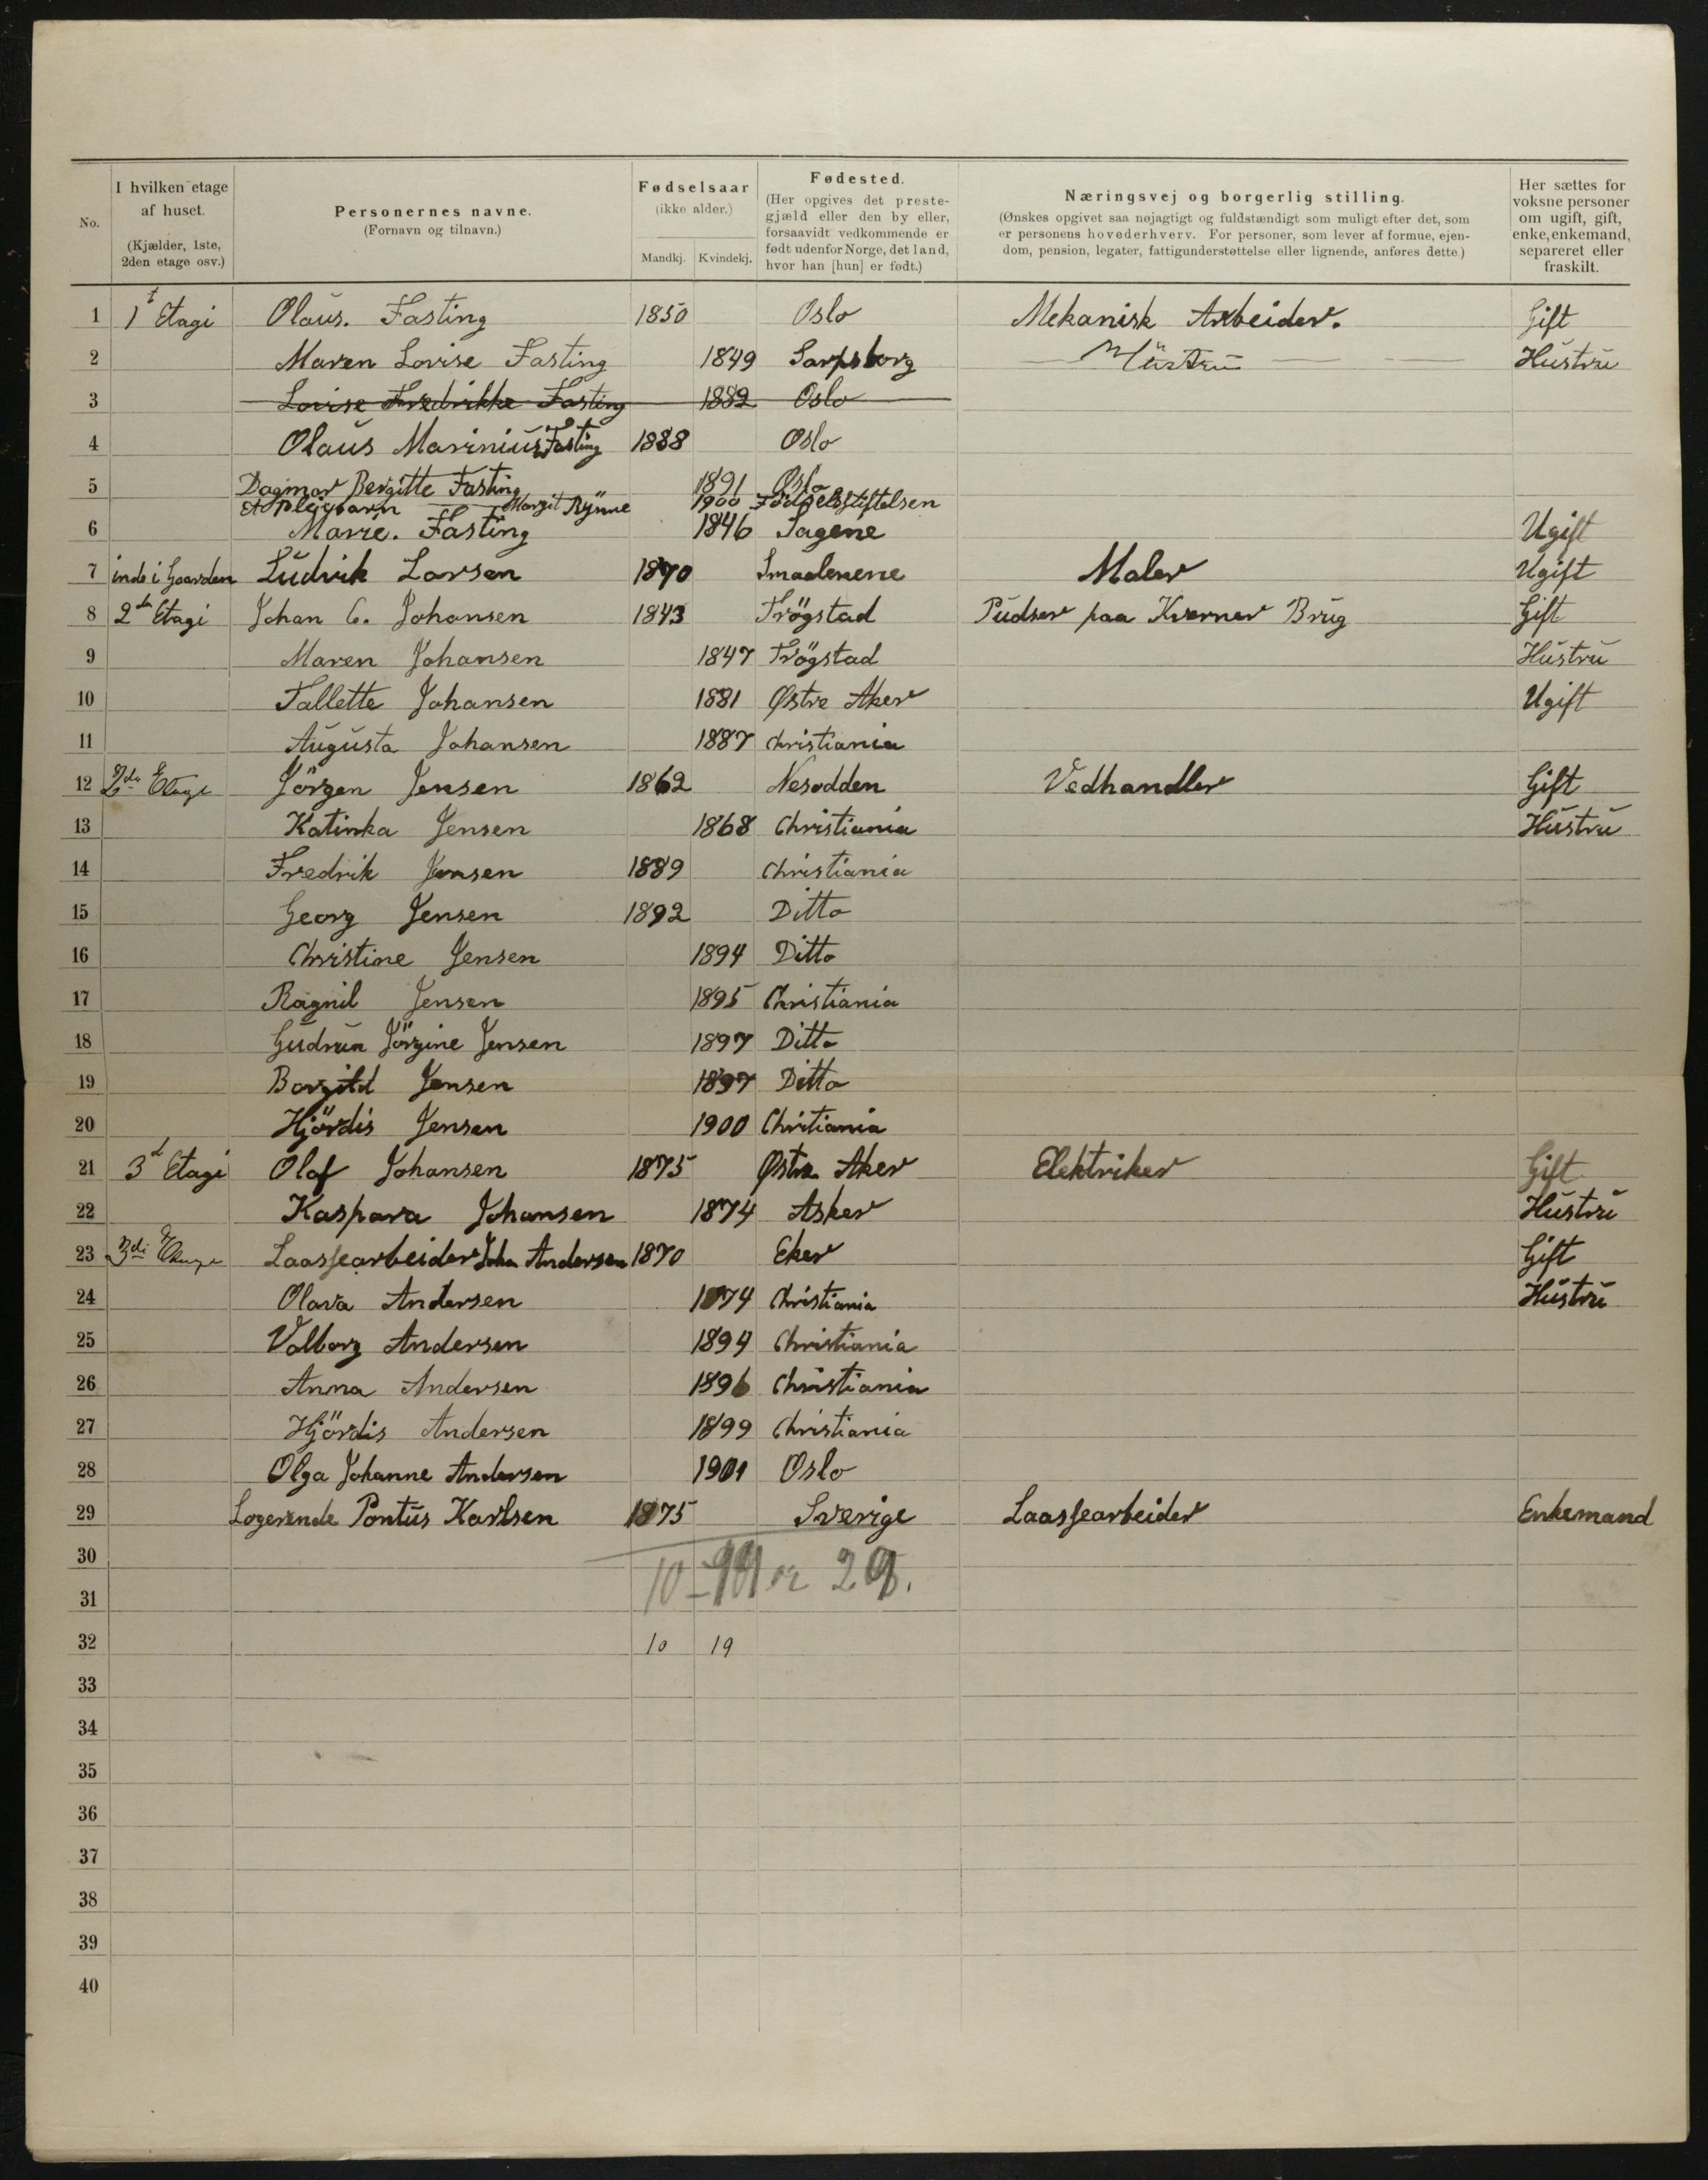 No. I hvilken etage af huset. (Kjælder, 1ste, 2den etage osv.) Personernes navne. (Fornavn og tilnavn.) Fødselsaar (ikke alder.) Mandkj. Kvindekj. Fødested. (Her opgives det prestegjæld eller den by eller, forsaavidt vedkommende er født udenfor Norge, det land, hvor han [hun] er født.) Næringsvej og borgerlig stilling. (Ønskes opgivet saa nøjagtigt og fuldstændigt som muligt efter det, som er personens hovederhverv. For personer, som lever af formue, ejendom, pension, legater, fattigunderstøttelse eller lignende, anføres dette.) Her sættes for voksne personer om ugift, gift, enke, enkemand, separeret eller fraskilt.
1 1t Etagi Olaus. Fasting 1850 Oslo Mekanisk Arbeider. Gift
2 Maren Lovise Fasting 1849 Sarpsborg Hustru Hustru
3 Lovise Fredrikke Fasting 1882 Oslo
4 Olaus Marinius Fasting 1888 Oslo
5 Dagmar Bergitte Fasting 1891 Oslo
Et Pleiebarn Margit Rynne 1900 Fødselsstiftelsen
6 Marie. Fasting 1846 Sagene Ugift
7 inde i Gaarden Ludvik Larsen 1870 Smaalenene Maler Ugift
8 2den Etagi Johan C. Johansen 1843 Trögstad Pudser paa Kverner Brug Gift
9 Maren Johansen 1847 Trögstad Hustru
10 Tallette Johansen 1881 Østre Aker Ugift
11 Augusta Johansen 1887 Christiania
12 2de Etage Jörgen Jensen 1862 Nesodden Vedhandler Gift
13 Katinka Jensen 1868 Christiania Hustru
14 Fredrik Jensen 1889 Christiania
15 Georg Jensen 1892 Ditto
16 Christine Jensen 1894 Ditto
17 Ragnil Jensen 1895 Christiania
18 Gudrun Jörgine Jensen 1897 Ditto
19 Borgild Jensen 1897 Ditto
20 Hjördis Jensen 1900 Chritiania
21 3d Etagi Olaf Johansen 1875 Østre Aker Elektriker Gift
22 Kaspara Johansen 1874 Asker Hustru
23 3di Etage Laassearbeider Johan Andersen 1870 Eker Gift
24 Olava Andersen 1874 Christiania Hustru
25 Valborg Andersen 1894 Christiania
26 Anna Andersen 1896 Christiania
27 Hjördis Andersen 1899 Christiania
28 Olga Johanne Andersen 1901 Oslo
29 Logerende Pontus Karlsen 1875 Sverige Laassearbeider Enkemand
30
31 10-19 er 29.
32 10 19
33
34
35
36
37
38
39
40